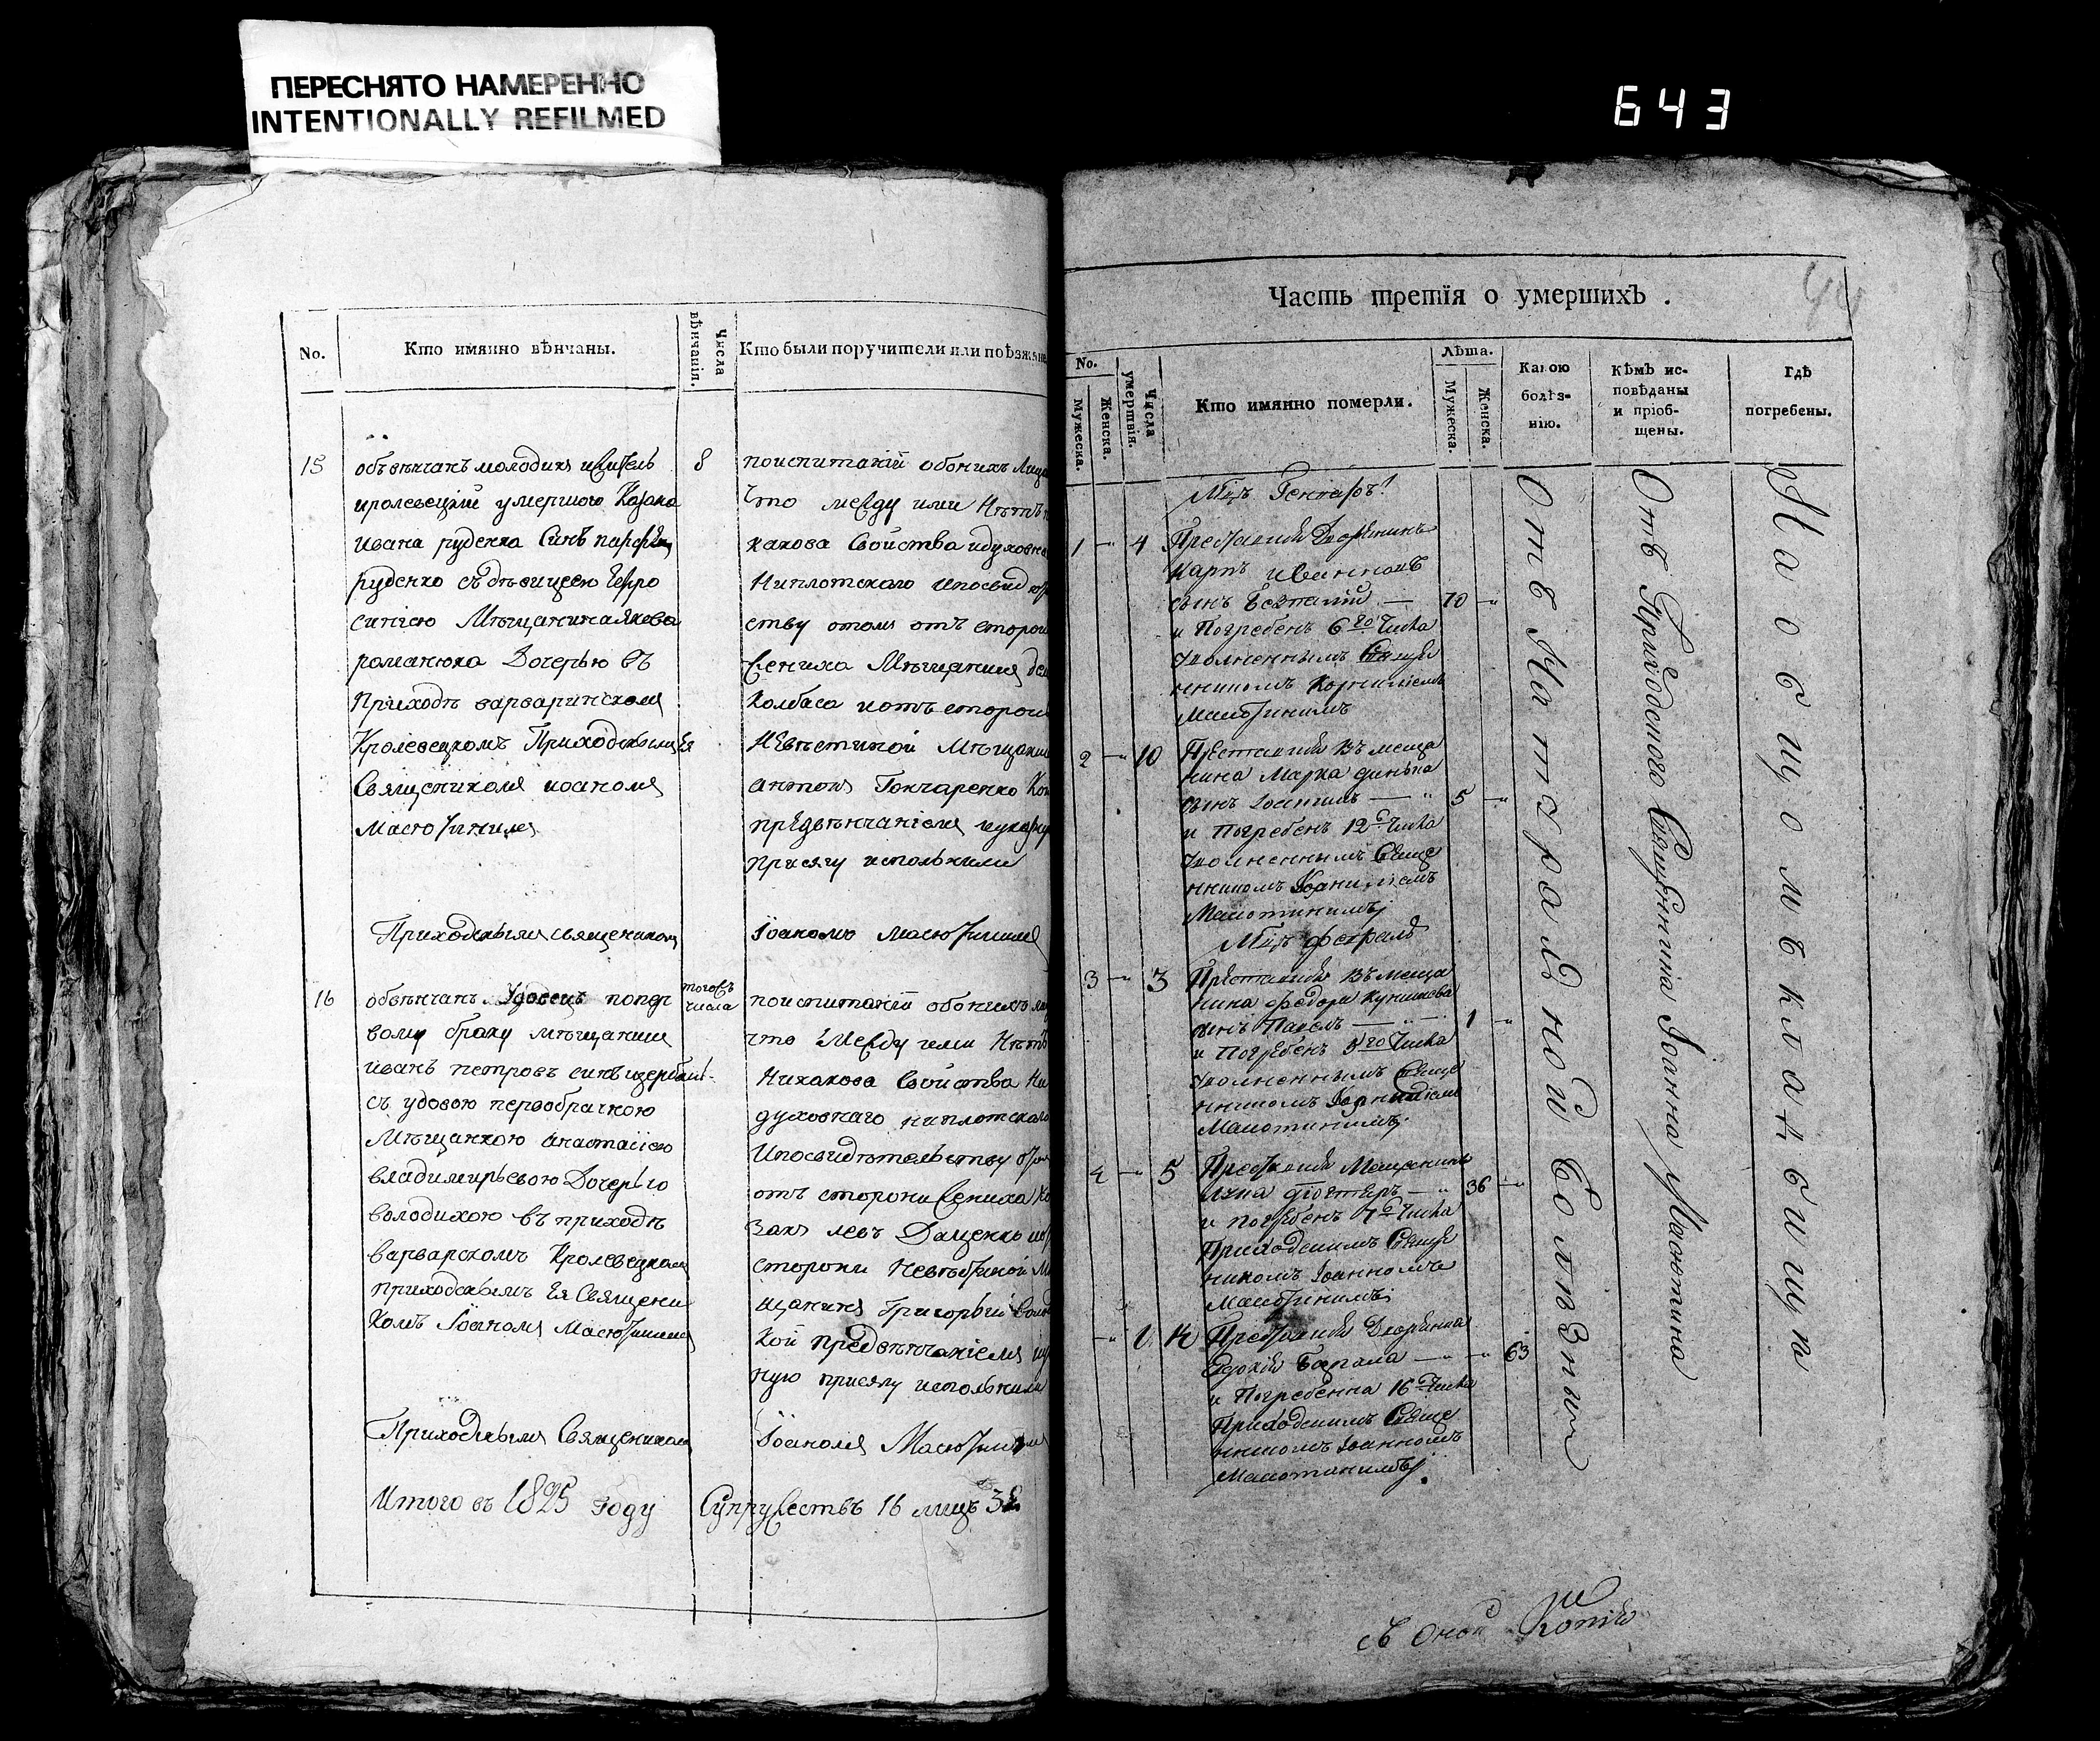 ПЕРЕСНЯТО НАМЕРЕННО
INTENTIONALLY REFILMED
643
No.
Кто имянно вѣнчаны.
Числа вѣнчанія.
Кто были поручители или поѣзжане
15
объвѣнчанъ молодикъ житель
кролевецкій умершого Козака
ивана руденка Синъ
руденко съ дѣвицею Евфро
синіею Мѣщанина якова
романюка Дочерью въ
Приходѣ варваринскомъ
Кролевецкомъ Приходскимъ Ея
Священикомъ иоаномъ
Масютинимъ
8
поиспитаніи обоихъ Лицъ
Что между ими Нѣтъ
какова Свойства ндуховна
Ниплотскаго ипосвид
ству отомъ отъ сторон
жениха Мѣщанинъ
Колбаса иотъ сторон
Невѣстиной Мѣщанин
антонъ Гончаренко
предвѣнчаніемъ
Присягу исполнили
Приходскимъ священикомъ
Іоаномъ Масютинимъ
16
обвѣнчанъ Удовецъ попер
вому браку мѣщанинъ
иванъ петровъ синъ
съ удовою первобрачною
Мѣщанкою анастасіею
владимирьевою Дочерью
володихою въ приходѣ
варварскомъ Кролевецкомъ
приходскимъ Ея Священи
комъ Іоаномъ Масютинимъ
тогожъ
числа
поиспитаніи обоихъ лиц
что Между ими Нѣтъ
Никакова Свойства Ни
духовнаго ниплотскаго
Ипосвидѣтельству
отъ сторони жениха Ко
закъ левъ Даценко
сторони Невѣстиной Мѣ
щанинъ Григорьій
кой предвѣнчаніемъ
ную присягу исполнили
Приходскимъ Священикомъ
Іоаномъ Масютинимъ
Итого въ 1825 году Супружествъ 16 лицъ 32
Часть третія о умершихъ.
No.
Мужеска.
Женска.
Числа умертвія.
Кто имянно померли.
Лѣта.
Мужеска.
Женска.
Какою болѣзнію.
Кѣмъ исповѣданы и пріобщены.
Гдѣ погребены.
Мцъ Генваръ
1 - 4 Преставился Дворянинъ
Карпъ ивановъ
сынъ — 70
и Погребенъ 6го Числа
уволненнымъ Свяще
нникомъ Корниліемъ
Масютинимъ
2 - 10 Преставился въ меща
нина Марка
сынъ — 5
и Погребенъ 12 Числа
уволненнымъ Свяще
нникомъ Корниліемъ
Масютинимъ
Мцъ февраль
3 - 3 Преставился въ меща
нина федора
сынъ Павелъ — 1
и Погребенъ 5го Числа
уволненнымъ Свяще
нникомъ Корниліемъ
Масютинимъ
4 - 5 Преставился Мещанинъ
— 36
и погребенъ 7 Числа
Приходскимъ Свяще
никомъ Іоанномъ
Масютинимъ
- 1 14 Преставился Дворянка
— 63
и Погребенна 16 Числа
Приходскимъ Свяще
нникомъ Іоанномъ
Масютинимъ
Отъ Натуральной болѣзни
Отъ Приходского Священника Іоанна Масютина
На общомъ кладбищѣ